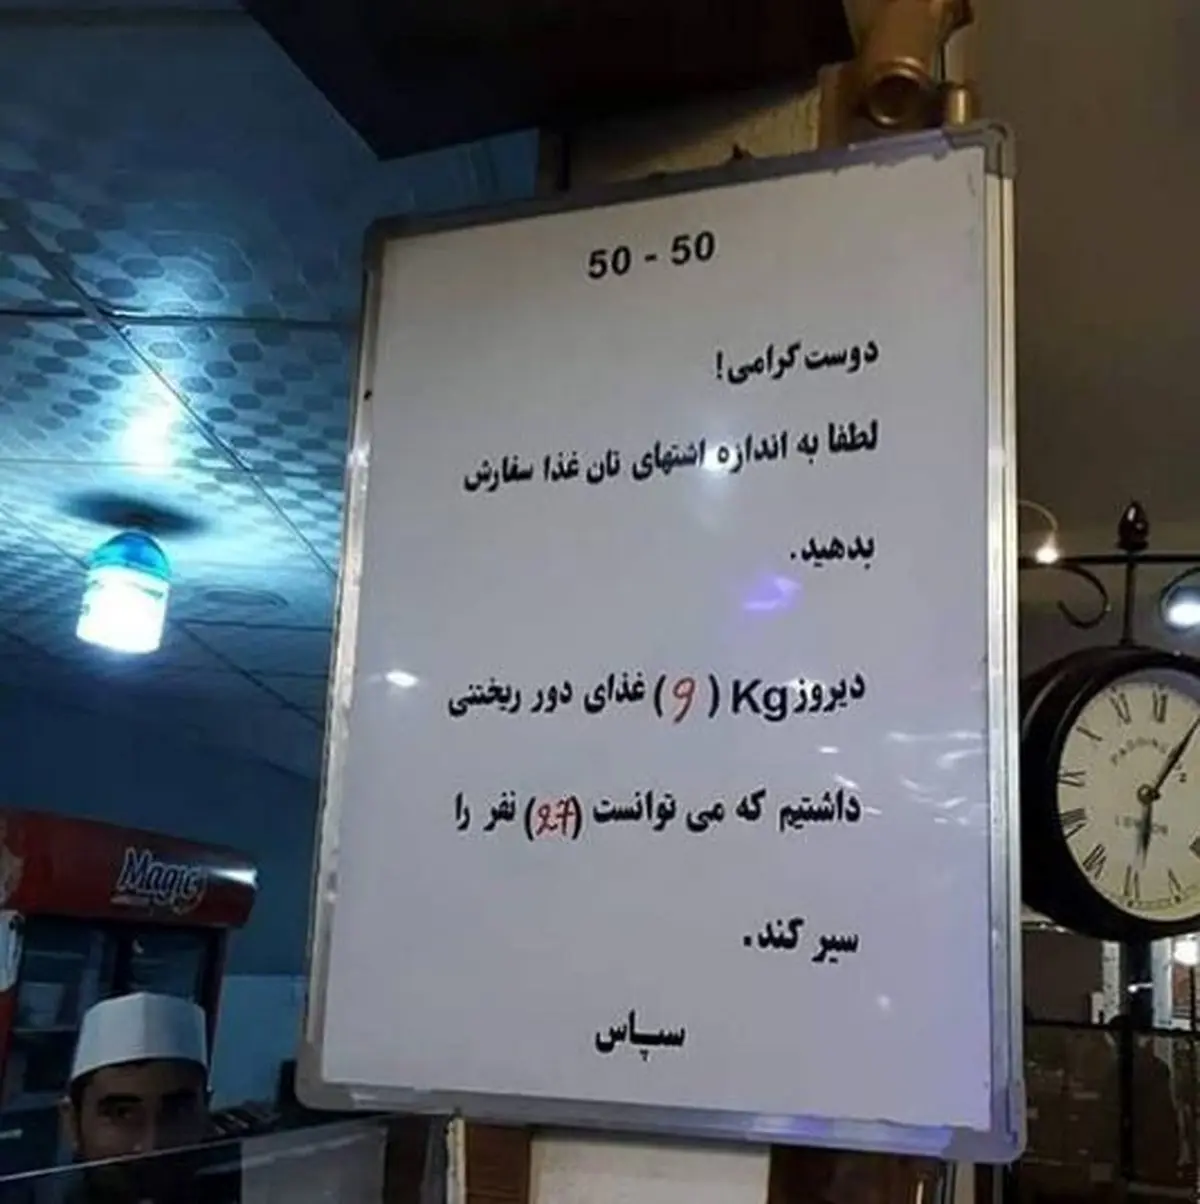 50 - 50
دوست گرامی!
لطفا به اندازه اشتهای تان غذا سفارش
بدهید.
دیروز Kg (9) غذای دور ریختنی
داشتیم که می توانست (27) نفر را
سیر کند.
سپاس
Magic
PADDINGTON
LONDON